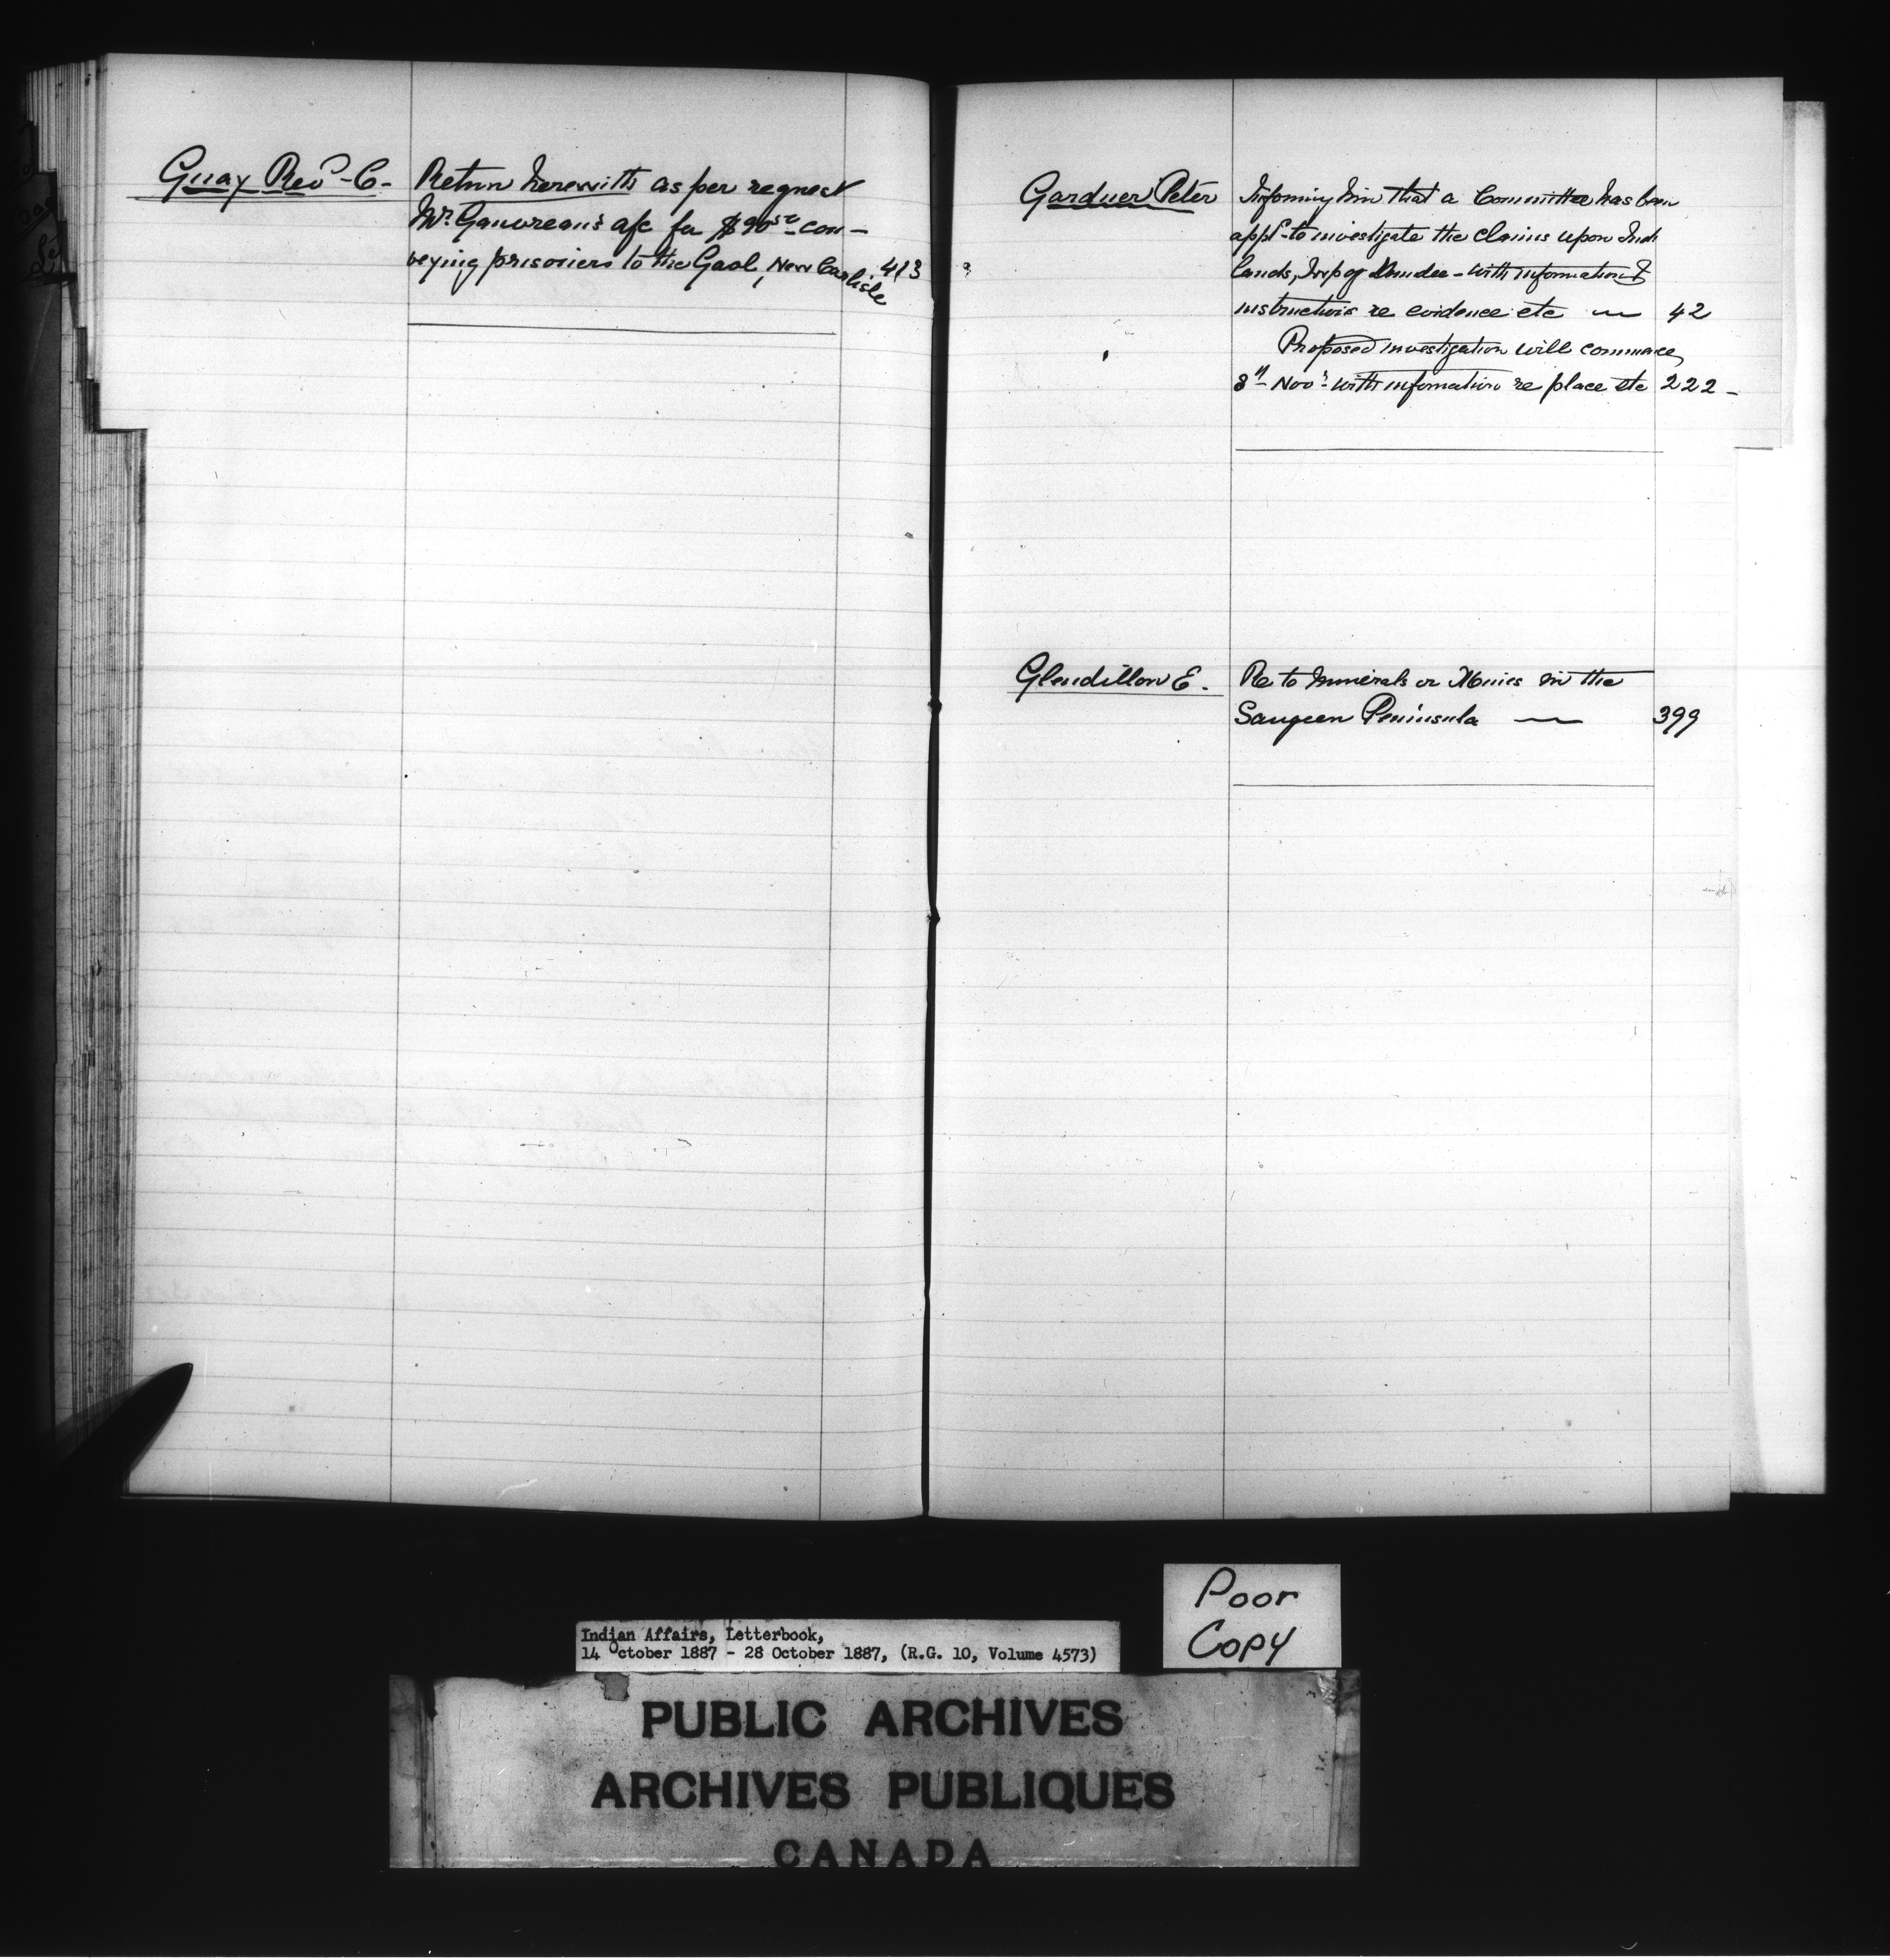 Guay Revd - C -
Return herewith as per request
Mr. Gauvreau's a/c for $90 50 - con -
veying prisoners to the Gaol, New Carlisle 413
Gardner Peter
Informing him that a Committee has been
appd - to investigate the claims upon Ind
lands, Twp of Dundee - with information &
instructions re evidence etc — 42
Proposed investigation will commence
8th Novr - with information re place etc 222 -
Glendillon E.
Re to Minerals or Mines in the
Saugeen Peninsula — 399
Poor
Copy
Indian Affairs, Letterbook,
14 October 1887 - 28 October 1887, (R.G. 10, Volume 4573)
PUBLIC ARCHIVES
ARCHIVES PUBLIQUES
CANADA